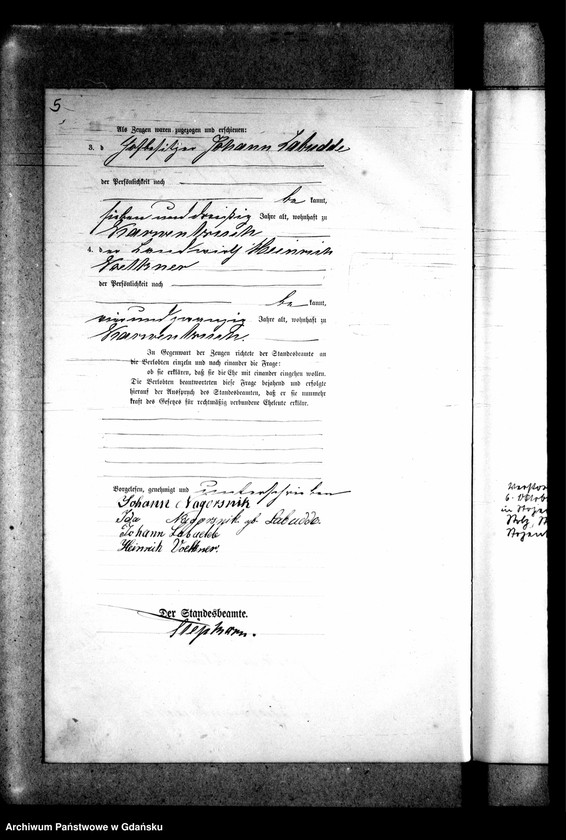 5
Als Zeugen waren zugezogen und erschienen:
3. d Hofbesitzer Johann Labudde
der Persönlichkeit nach
be kannt,
sieben und dreißig Jahre alt, wohnhaft zu
Karwenbruch
4. der Landwirth Heinrich
Voelkner
der Persönlichkeit nach
be kannt,
einundzwanzig Jahre alt, wohnhaft zu
Karwenbruch.
In Gegenwart der Zeugen richtete der Standesbeamte an
die Verlobten einzeln und nach einander die Frage:
ob sie erklären, daß sie die Ehe mit einander eingehen wollen.
Die Verlobten beantworteten diese Frage bejahend und erfolgte
hierauf der Ausspruch des Standesbeamten, daß er sie nunmehr
kraft des Gesetzes für rechtmäßig verbundene Eheleute erkläre.
Vorgelesen, genehmigt und unterschrieben
Johann Nagorsnik
Ida Nagorsnik gb. Labudde.
Johann Labudde
Heinrich Voelkner.
Der Standesbeamte.
6. Oktob
in
Archiwum Państwowe w Gdańsku